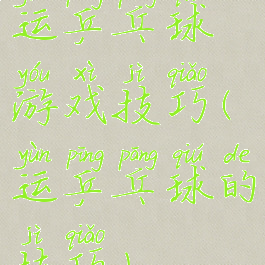 运乒乓球
yóu xì jì qiǎo
游戏技巧(
yùn pīng pāng qiú de
运乒乓球的
jì qiǎo
技巧)